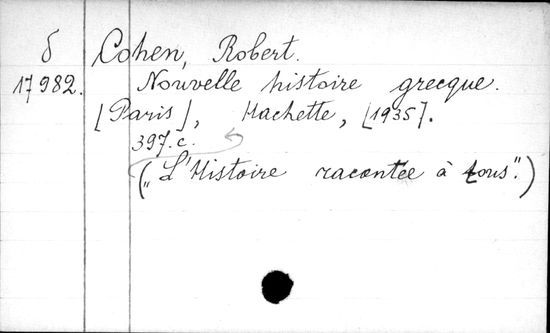 δ Cohen, Robert.
17982. Nouvelle histoire grecque.
[Paris], Hachette, [1935].
397.c.
(„L'Histoire racontée à tous".)